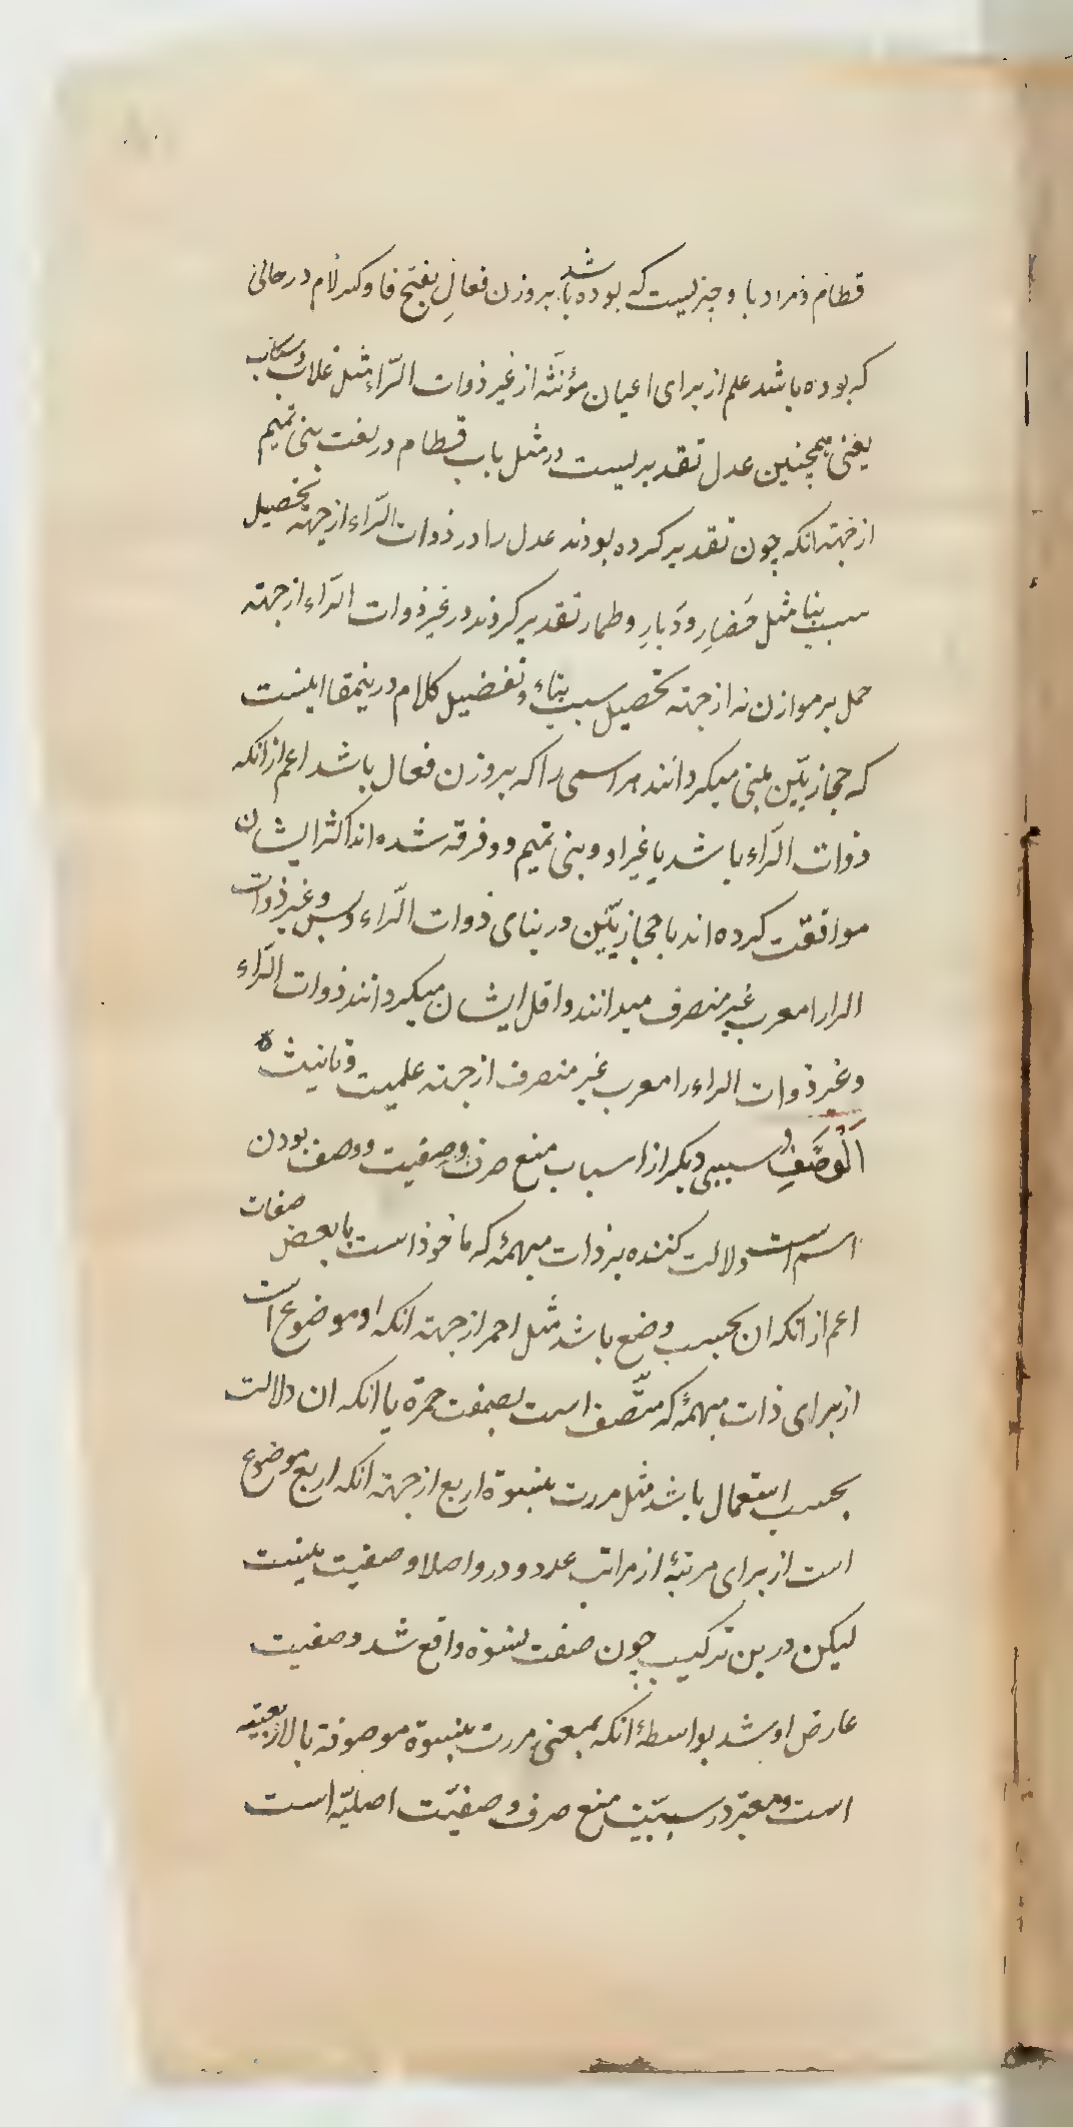 قطام ومراد باو چیزیست که بوده باشد بروزن فعالِ بفتح فا وکسر لام درحالی
که بوده باشد علم از برای اعیان مؤنثه از غیر ذوات الرّاء مثل غلاب وسکاب
یعنی همچنین عدل تقدیریست در مثل باب قطام در لغت بنی تمیم
از جهته انکه چون تقدیر کرده بودند عدل را در ذوات الرّاء از جهته تحصیل
سبب بنا مثل حَضارِ ودَبارِ وطمار تقدیر کردند در غیر ذوات الرّاء از جهته
حمل بر موازن نه از جهته تحصیل سبب بناء وتفضیل کلام درینمقام اینست
که حجازیّین مبنی میکردانند هر اسمی را که بروزن فعال باشد اعم از انکه
ذوات الرّاء باشد یا غیر او وبنی تمیم دو فرقه شده اند اکثر ایشان
موافقت کرده اند با حجازیّین در بنای ذوات الرّاء وبس وغیر ذوات
الرا را معرب غیر منصرف میدانند واقل ایشان میکردانند ذوات الرّاء
وغیر ذوات الراء را معرب غیر منصرف از جهته علمیت وتانیث ه
اَلْوَصَّفِ وسببی دیکر از اسباب منع صرف وصفیت ووصف بودن
اسم است دلالت کننده بر ذات مبهمهٔ که ماخوذ است با بعض صفات
اعم از انکه ان بحسب وضع باشد مثل احمر از جهته انکه او موضوع است
از برای ذات مبهمهٔ که متّصف است بصفت حمرة یا انکه ان دلالت
بحسب استعمال باشد مثل مررت بنسوة اربع از جهته انکه اربع موضوع
است از برای مرتبهٔ از مراتب عدد ودرو اصلا وصفیت نیست
لیکن درین ترکیب چون صفت نسوة واقع شد وصفیت
عارض او شد بواسطهٔ انکه بمعنی مررت بنسوة موصوفة بالاربعیّه
است ومعتبر در سببیّت منع صرف وصفیّت اصلیّه است